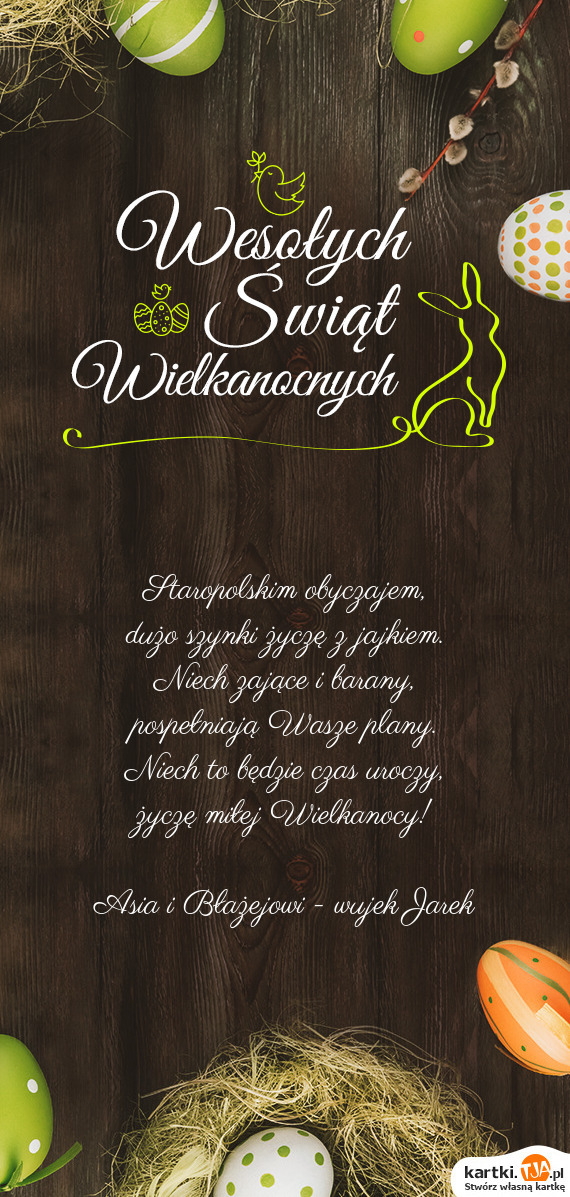 Wesołych
Świąt
Wielkanocnych
Staropolskim obyczajem,
dużo szynki życzę z jajkiem.
Niech zające i barany,
pospełniają Wasze plany.
Niech to będzie czas uroczy,
życzę miłej Wielkanocy!
Asia i Błażejowi - wujek Jarek
kartki.TJA.pl
Stwórz własną kartkę